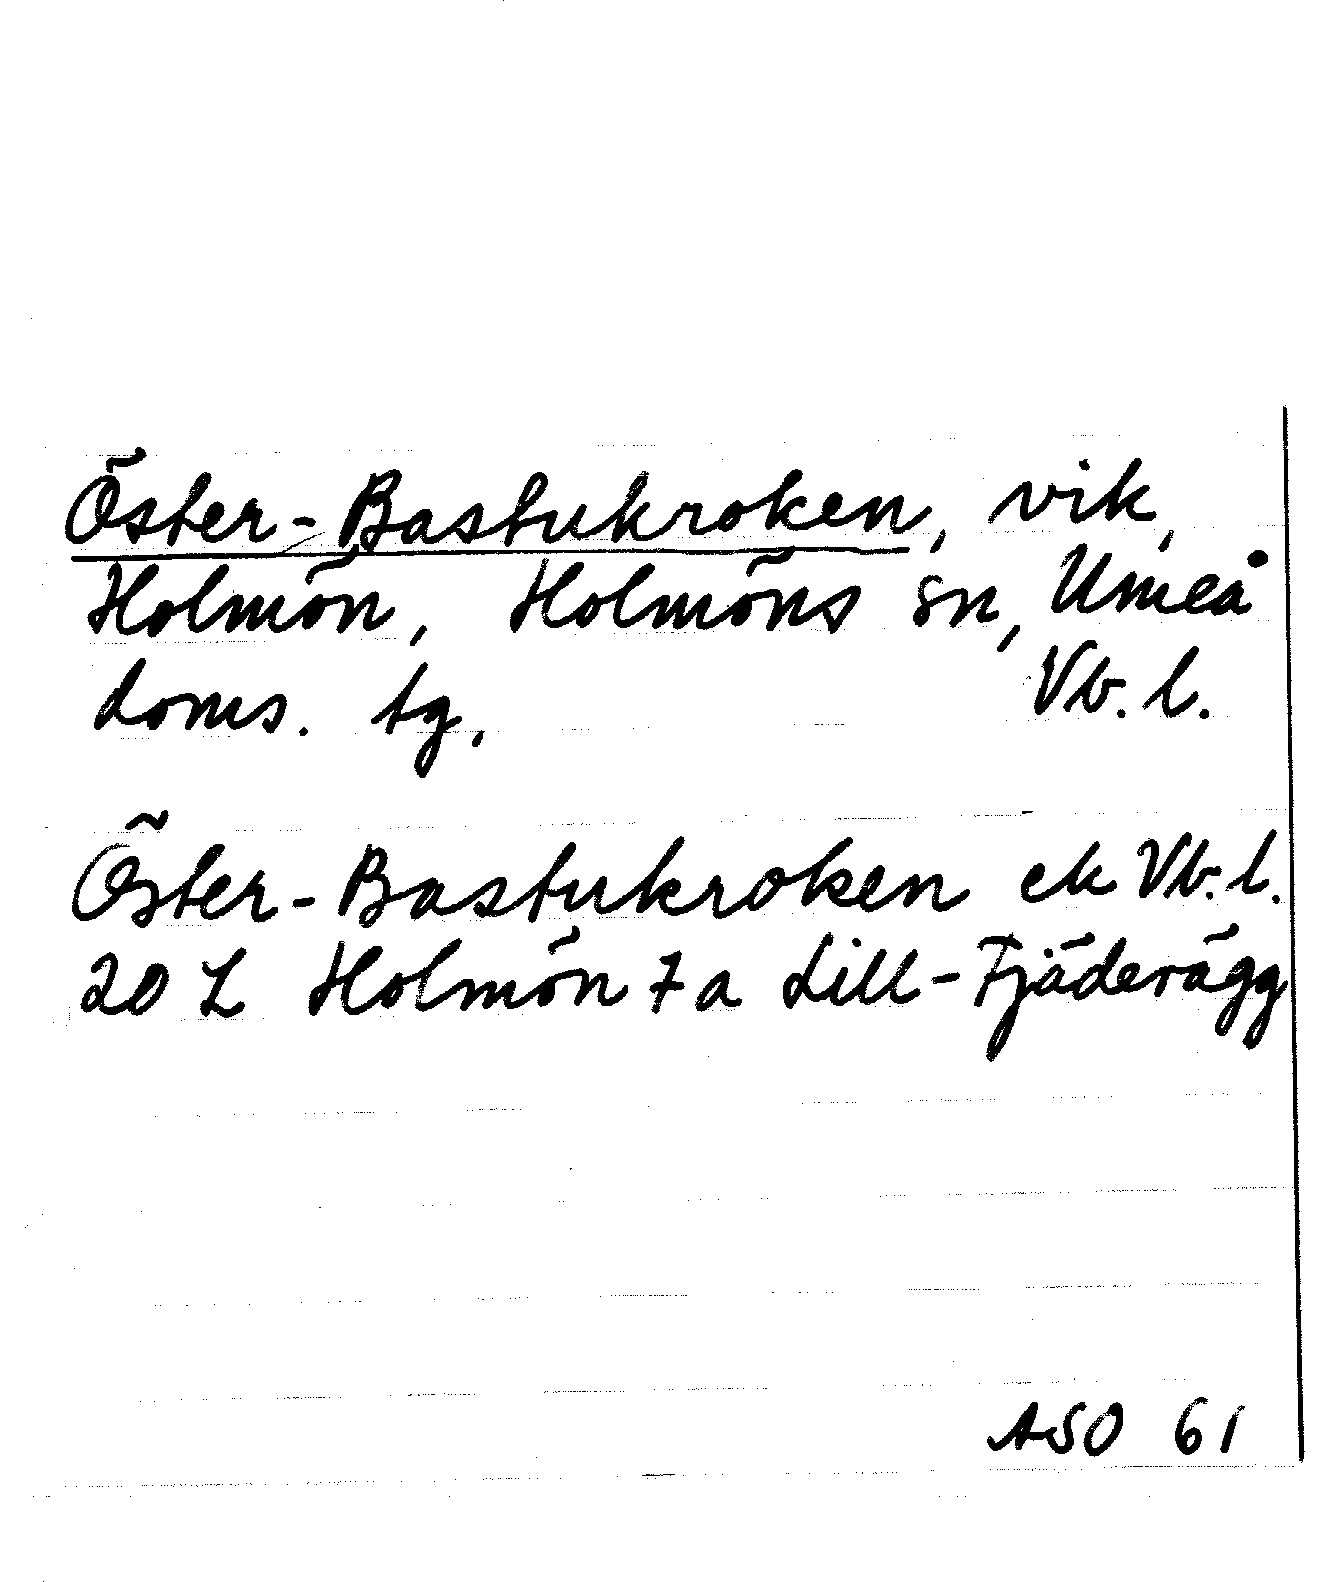 Öster-Bastukroken, vik,
Holmön, Holmöns sn, Umeå
doms. tg. Vb. l.
Öster-Bastukroken ek Vb. l.
20 L Holmön 7 a Lill-Fjäderägg
ASO 61